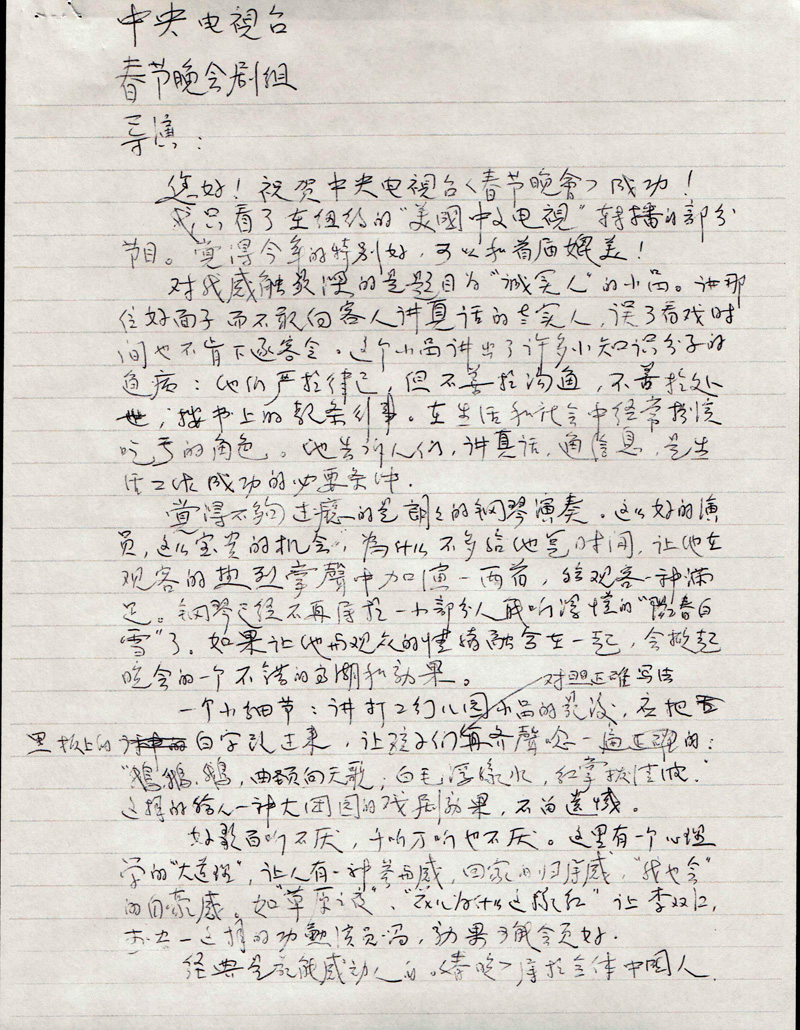 中央电視台
春节晚会剧组
导演：
您好！祝贺中央电視台《春节晚會》成功！
我只看了在纽约的“美國中文电視”转播的部分
节目。觉得今年的特别好，可以和首届媲美！
对我感触最深的是题目为“诚实人”的小品。讲那
位好面子而不敢向客人讲真话的老实人，误了看戏时
间也不肯下逐客令。这个小品讲出了许多小知识分子的
通病：他们严於律己，但不善於沟通，不善於处
世，按书上的教条行事。在生活和社会中经常扮演
吃亏的角色。他告诉人们，讲真话，通信息，是生
活工作成功的必要条件.
觉得不夠过瘾的是朗朗的钢琴演奏。这么好的演
员，这么宝贵的机会，为什么不多给他点时间，让他在
观客的热烈掌聲中加演一两首，给观客一种满
足。钢琴已经不再属於一小部分人能听得懂的“阳春白
雪”了。如果让他与观众的情绪融合在一起，会掀起
晚会的一个不错的高潮和効果。
对照正確写法
一个小细节：讲打工幼儿园小品的最后，应把
黑板上的白字改过来，让孩子们再齐聲唸一遍正確的：
“鵝鵝鵝，曲頸向天歌；白毛浮绿水，红掌拨清波.”
这样的给人一种大团圆的戏剧効果，不留遗憾。
好歌百听不厌，千听万听也不厌。这里有一个心理
学的“大道理”，让人有一种参与感，回家的归属感，“我也会”
的自豪感。如“草原之夜”、“花儿为什么这样红”让李双江，
这样的功勳演员唱，効果可能会更好.
经典是最能感动人的。《春晚》属於全体中国人.